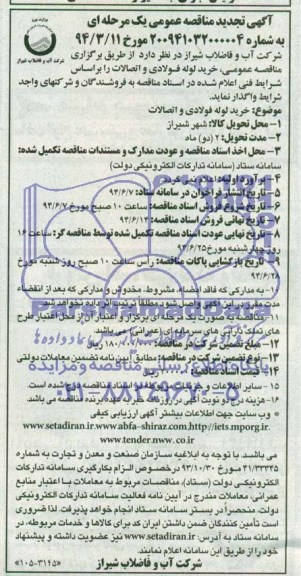 آگهی تجدید مناقصه عمومی یک مرحله ای
به شماره ۲۰۰۹۴۱۰۳۲۰۰۰۰۰۴ مورخ ۹۴/۳/۱۱
شرکت آب و فاضلاب شیراز در نظر دارد از طریق برگزاری
مناقصه عمومی، خرید لوله فولادی و اتصالات را براساس
شرایط فنی اعلام شده در اسناد مناقصه به فروشندگان و شرکتهای واجد
شرایط واگذار نماید.
شرکت آب و فاضلاب شیراز
موضوع: خرید لوله فولادی و اتصالات
۱- محل تحویل کالا: شهر شیراز
۲- مدت تحویل: ۲ (دو) ماه
۳- محل اخذ اسناد مناقصه و عودت مدارک و مستندات مناقصه تکمیل شده:
سامانه ستاد (سامانه تدارکات الکترونیکی دولت)
۴- برآورد اولیه: اعلام نمی
۵- تاریخ انتشار فراخوان در سامانه ستاد: ۹۴/۶/۷
۶- تاریخ شروع فروش اسناد مناقصه: ساعت ۱۰ صبح مورخ ۹۴/۶/۷
۷- تاریخ نهائی فروش اسناد مناقصه: ۹۴/۶/۱۲
۸- تاریخ نهایی عودت اسناد مناقصه تکمیل شده توسط مناقصه گر: ساعت ۱۶
روز چهارشنبه مورخ ۹۴/۶/۲۵
۹- تاریخ بازگشایی پاکات مناقصه: راس ساعت ۱۰ صبح روز شنبه مورخ
۹۴/۶/۲۸
۱۰- به مدارکی که فاقد امضاء، مشروط، مخدوش و مدارکی که بعد از انقضاء
مدت مقرر در این آگهی واصل شود مطلقا ترتیب اثر داده نخواهد شد.
۱۱- مناقصه به صورت یک مرحله ای برگزار و اعتبار آن از محل اعتبار طرح
های تملک دارائی های سرمایه ای (عمرانی) می باشد.
۱۲- مبلغ تضمین شرکت در مناقصه: ریال
۱۳- نوع تضمین شرکت در مناقصه: مطابق آیین نامه تضمین معاملات دولتی
۱۴- قیمت اسناد مناقصه: ریال
۱۵- سایر اطلاعات و جزئیات در اسناد مناقصه درج شده است.
۱۶- هزینه درج دو نوبت آگهی در روزنامه بعهده برنده مناقصه می باشد.
* وب سایت جهت اطلاعات بیشتر آگهی ارزیابی کیفی
www.setadiran.ir.www.abfa-shiraz.com.http://iets.mporg.ir.
www.tender.nww.co.ir
می باشند. با توجه به ابلاغیه سازمان صنعت و معدن و تجارت به شماره
۲۱/۳۳۳۲۵ مورخ ۹۳/۱۰/۳۰ درخصوص الزام بکارگیری سامانه تدارکات
الکترونیکی دولت (ستاد)، مناقصات مربوط به معاملات با اعتبار منابع
عمرانی، معاملات مندرج در آیین نامه فعالیت سامانه تدارکات الکترونیکی
دولت، منحصراً در بستر سامانه ستاد انجام خواهد پذیرفت. لذا ضروری
است تأمین کنندگان ضمن داشتن ایران کد برای کالاها و خدمات مربوطه، در
سامانه ستاد به آدرس: www.setadiran.ir نیز عضویت داشته و پیشنهاد
خود را از طریق این سامانه اعلام نمایند.
شرکت آب و فاضلاب شیراز
«۱۰۵-۳۱۴۵»